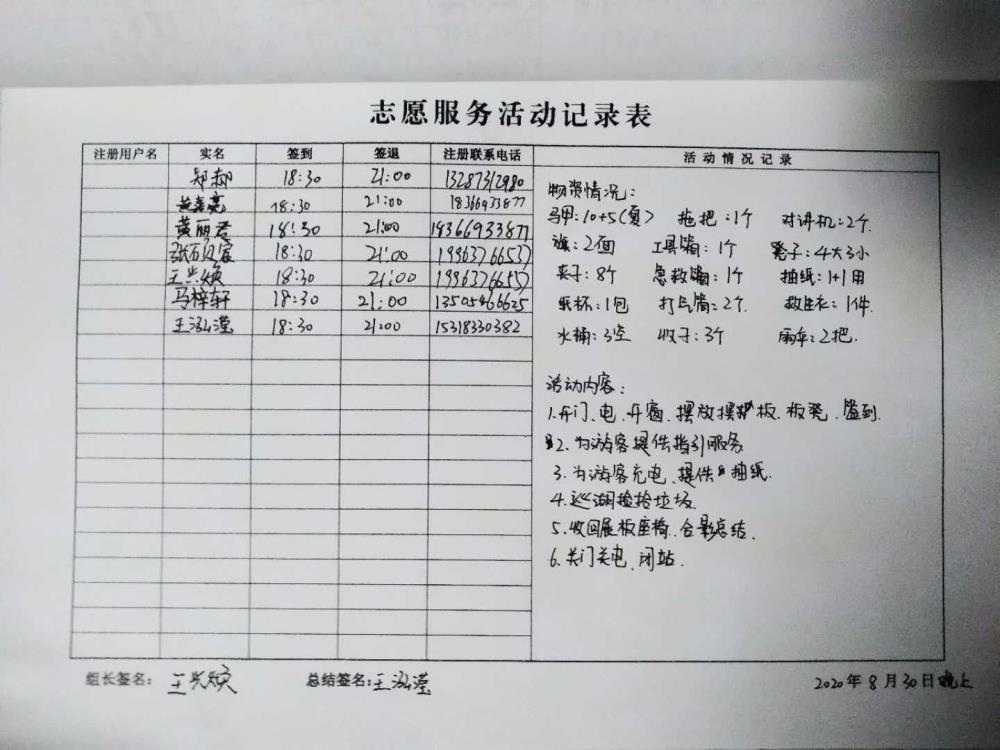 志愿服务活动记录表
注册用户名 实名 签到 签退 注册联系电话 活动情况记录
郑郝 18:30 21:00 13287312980
18:30 21:00 18366933877
黄丽君 18:30 21:00 18366933877
18:30 21:00 19963766537
王兴焕 18:30 21:00 19963766557
马梓轩 18:30 21:00 13505466625
王泓滢 18:30 21:00 15318330382
物资情况:
马甲:10+5(夏) 拖把:1个 对讲机:2个.
旗:2面 工具箱:1个 凳子:4大3小
夹子:8个 急救箱:1个 抽纸:1+1用
纸杯:1包 打气筒:2个. 救生衣:1件.
水桶:3空 收子:3个 雨伞:2把.
活动内容:
1.开门、电、开窗、摆放摆板、板凳、签到.
2.为游客提供指引服务
3.为游客充电、提供抽纸.
4.巡湖捡拾垃圾.
5.收回展板座椅、合影总结.
6.关门关电、闭站.
组长签名: 王兴焕 总结签名:王泓滢 2020年8月30日晚上